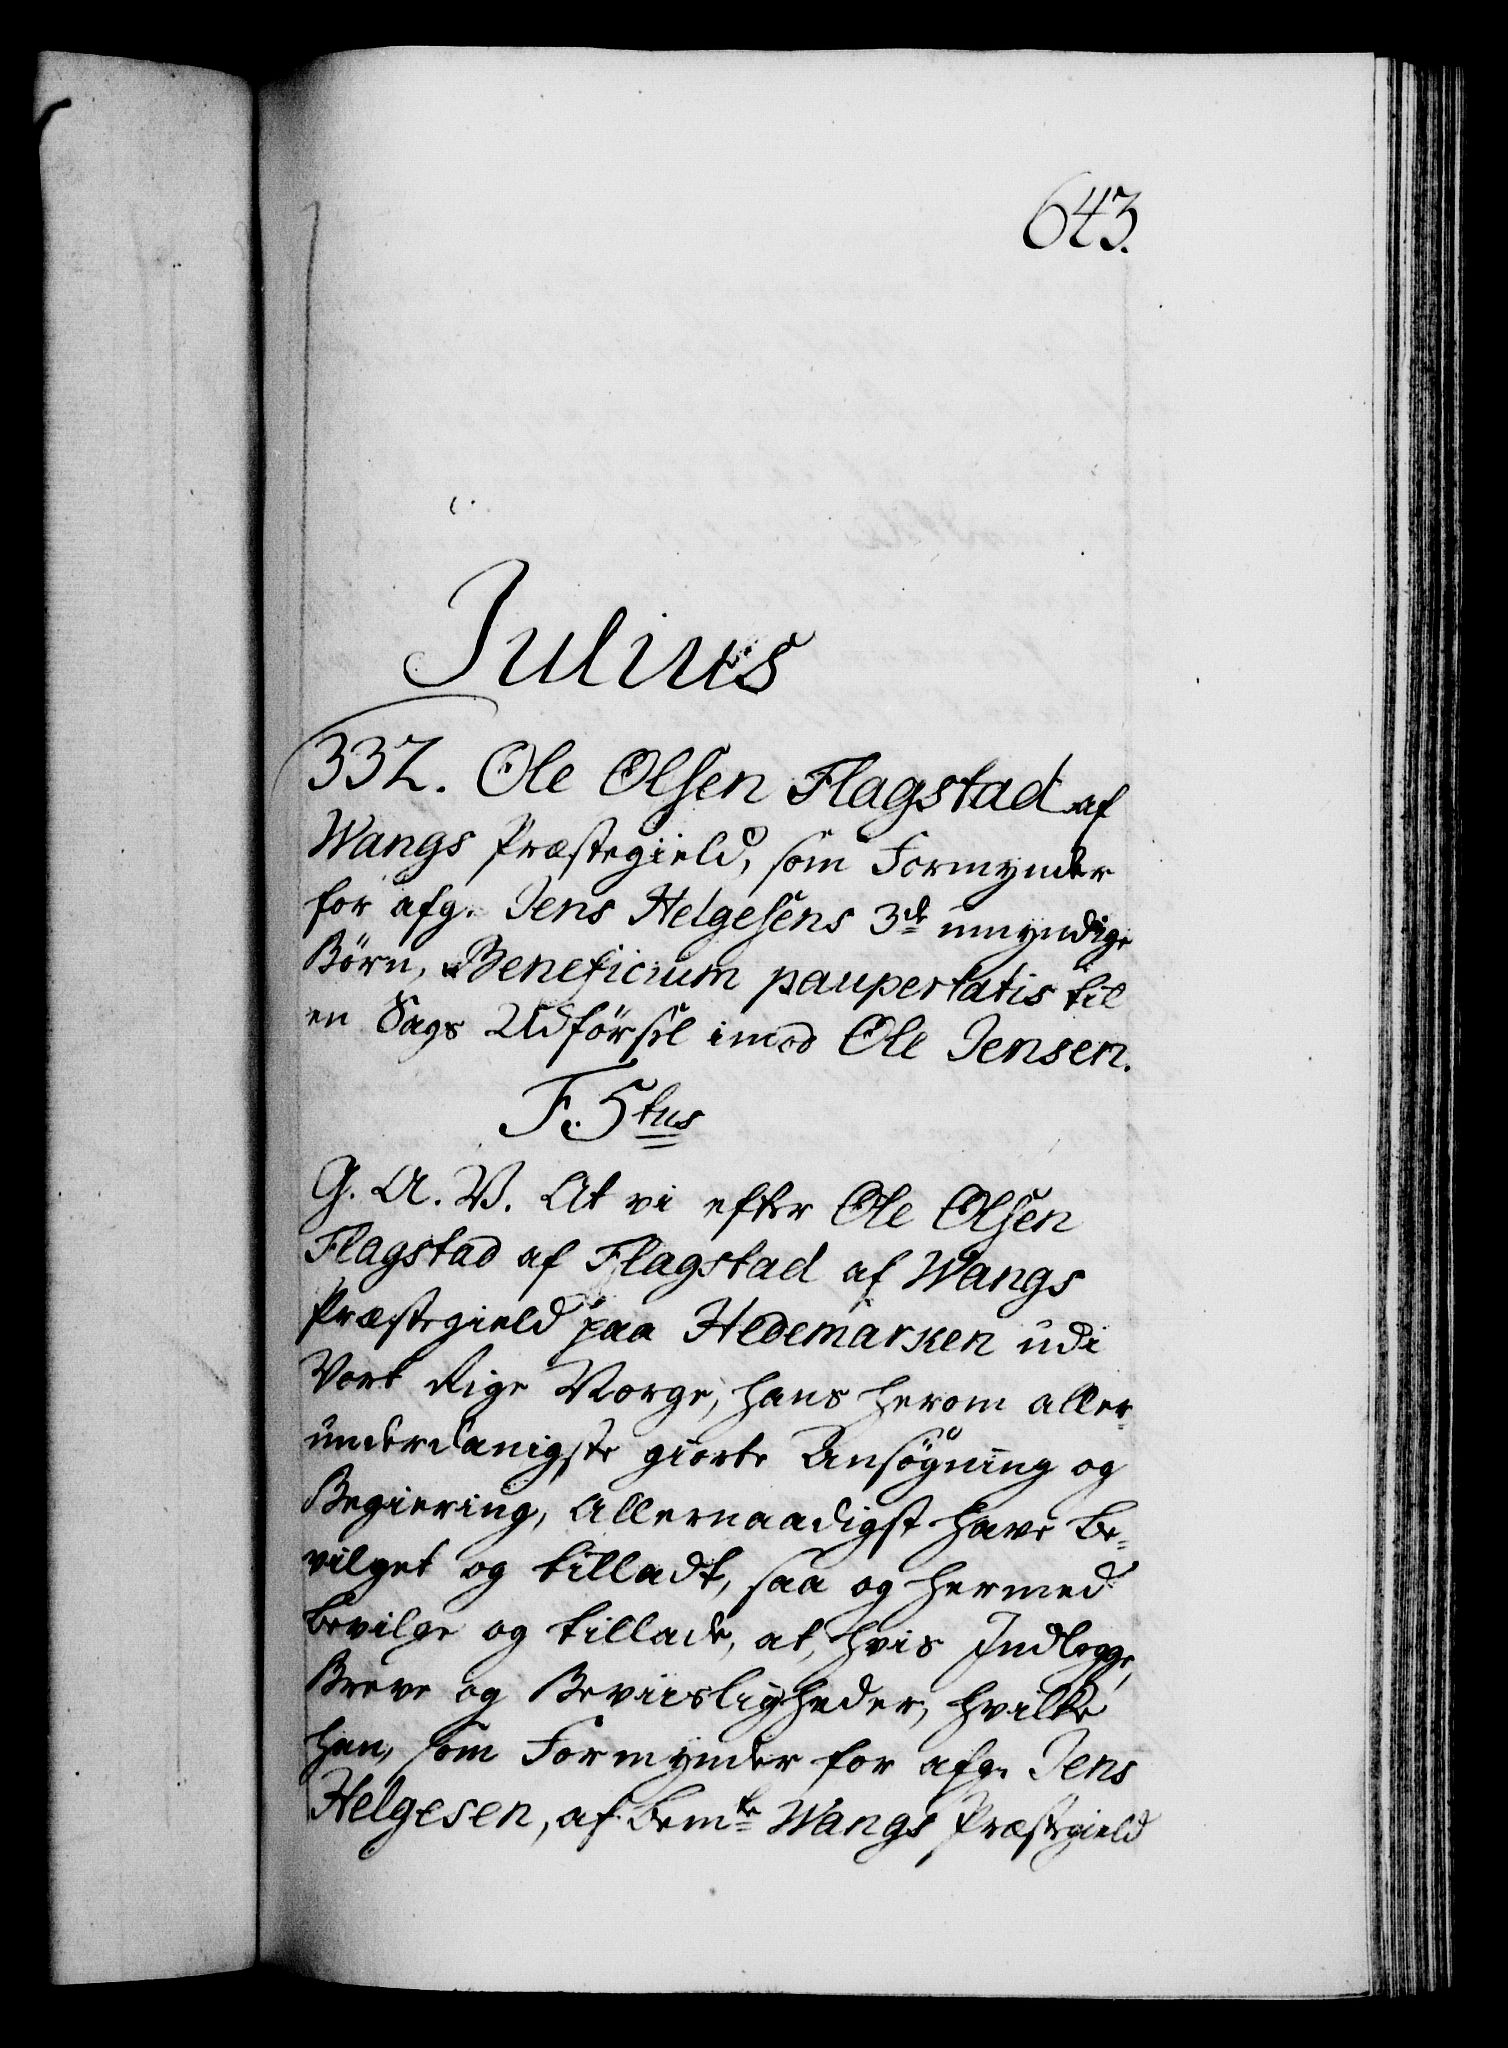 643.
Julius
337. Ole Olsen Flagstad af
Wangs Præstegield, som Formynder
for afg. Jens Helgesens 3de umyndige
Børn, Beneficium paupertatis til
en Sags Udførsel imod Ole Jensen.
F. 5tus
G. A. V. At vi efter Ole Olsen
Flagstad af Flagstad af Wangs
Præstegield paa Hedemarken udi
Vort Rige Norge, hans herom aller-
underdanigste giorte Ansøgning og
Begiering, Allernaadigst have be-
vilget og tilladt, saa og hermed
bevilge og tillade, at, hvis Indlegge,
Breve og Beviisligheder, hvilke
han, som Formynder for afg. Jens
Helgesen, af bemte Wangs Præstegield